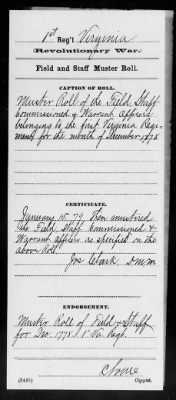 1st Reg't Virginia
Revolutionary War.
Field and Staff Muster Roll.
CAPTION OF ROLL.
Muster Roll of the Field, Staff
Commissioned & Warrant Officers
belonging to the first Virginia Regi-
ment for the month of December 1778
CERTIFICATE.
January 15. 79. Then mustered
the Field, Staff Commissioned &
Warrant officers as specified on the
above Roll.
Jos Clark D.M.M.
ENDORSEMENT.
Muster Roll of Field & Staff
for Dec. 1778. 1st Va. Regt.
Copyist.